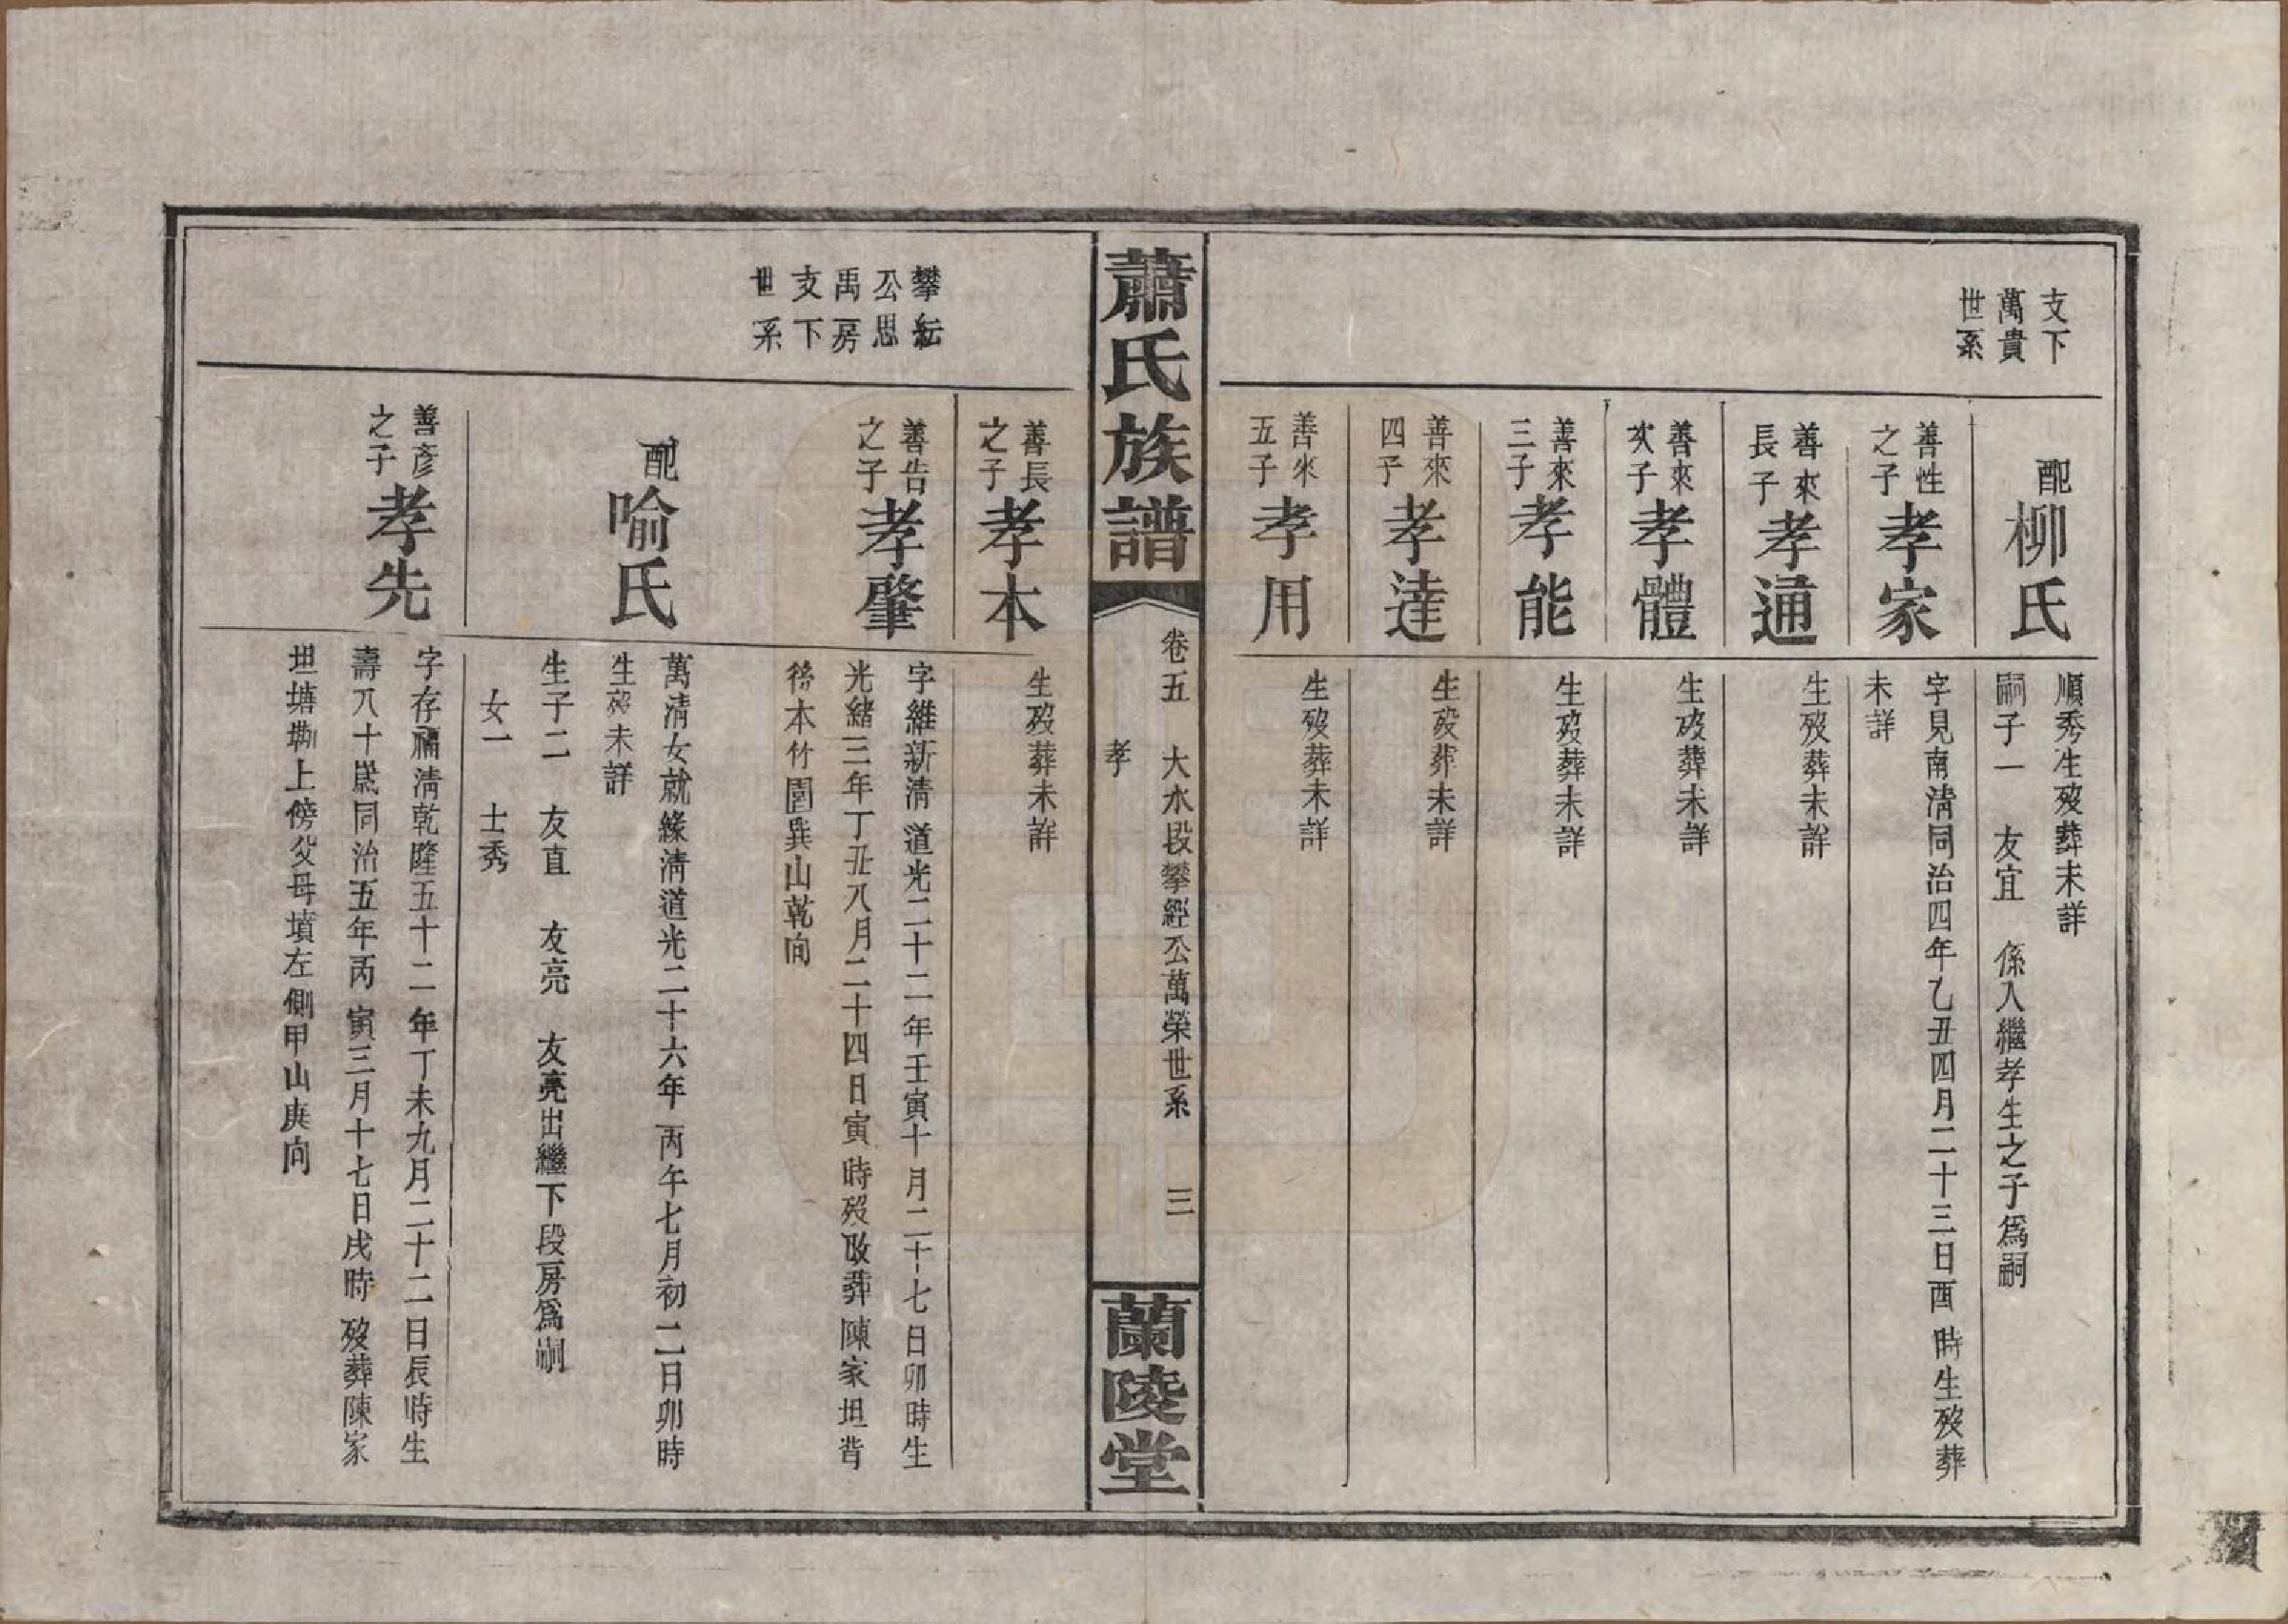 支下
萬貴
世系
配柳氏
順秀生歿葬未詳
嗣子一　友宜　係入繼孝生之子爲嗣
善性之子孝家
字見南清同治四年乙丑四月二十三日酉時生歿葬
未詳
善來長子孝通
生歿葬未詳
善來次子孝體
生歿葬未詳
善來三子孝能
生歿葬未詳
善來四子孝達
生歿葬未詳
善來五子孝用
生歿葬未詳
蕭氏族譜
卷五　大水段攀經公萬榮世系　三
孝
蘭陵堂
攀紜
公思
禹房
支下
世系
善長之子孝本
生歿葬未詳
善告之子孝肇
字維新清道光二十二年壬寅十月二十七日卯時生
光緒三年丁丑八月二十四日寅時歿改葬陳家坦背
傍本竹園巽山乾向
配喻氏
萬清女就緣清道光二十六年丙午七月初二日卯時
生歿未詳
生子二　友直　友亮　友亮出繼下段房爲嗣
女一　士秀
善彥之子孝先
字存禤清乾隆五十二年丁未九月二十二日辰時生
壽八十歲同治五年丙寅三月十七日戌時歿葬陳家
坦塘墈上傍父母墳左側甲山庚向